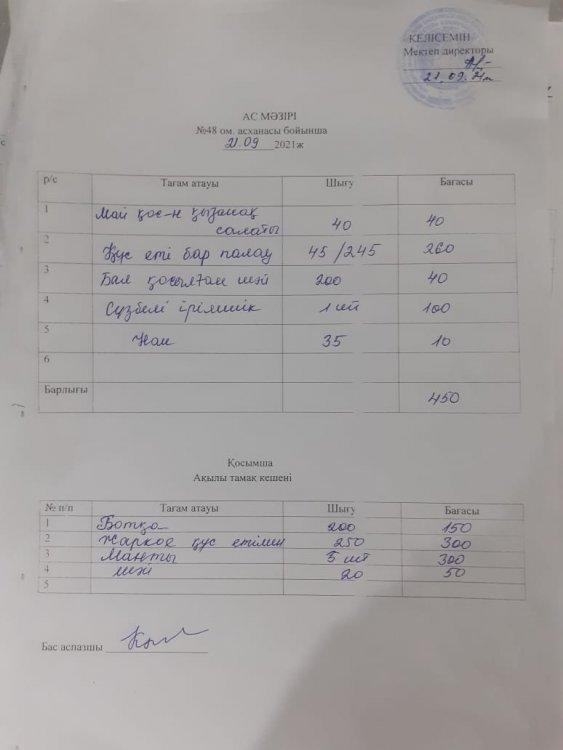 КЕЛІСЕМІН
Мектеп директоры
21.09.21ж
АС МӘЗІРІ
№48 ом. асханасы бойынша
21.09 2021ж
р/с Тағам атауы Шығу Бағасы
1 Май қос-н қызанақ салаты 40 40
2 Құс еті бар палау 45/245 260
3 Бал қосылған шәй 200 40
4 Сүзбелі ірімшік 1 шт 100
5 Нан 35 10
6
Барлығы 450
Қосымша
Ақылы тамақ кешені
№ п/п Тағам атауы Шығу Бағасы
1 Ботқа 200 150
2 Жаркое құс етімен 250 300
3 Манты 5 шт 300
4 шәй 20 50
5
Бас аспазшы